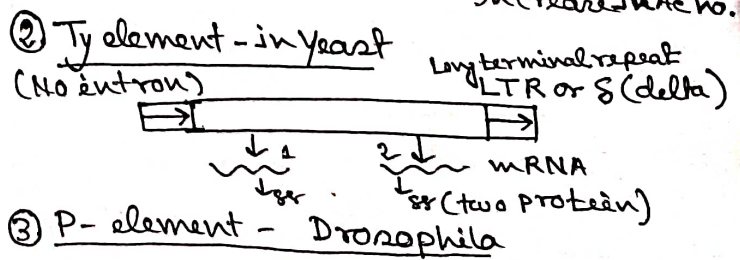 increase in the no.
② Ty element - in Yeast
(No intron)
Long terminal repeat
LTR or δ (delta)
1 2 mRNA
(two protein)
③ P- element - Drosophila